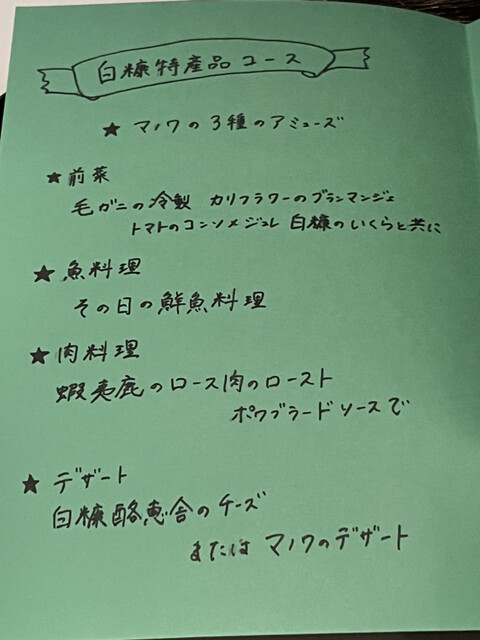 白糠特産品コース
★ マノワの3種のアミューズ
★ 前菜
毛ガニの冷製 カリフラワーのブランマンジェ
トマトのコンソメジュレ 白糠のいくらと共に
★ 魚料理
その日の鮮魚料理
★ 肉料理
蝦夷鹿のロース肉のロースト
ポワブラードソースで
★ デザート
白糠酪恵舎のチーズ
または マノワのデザート